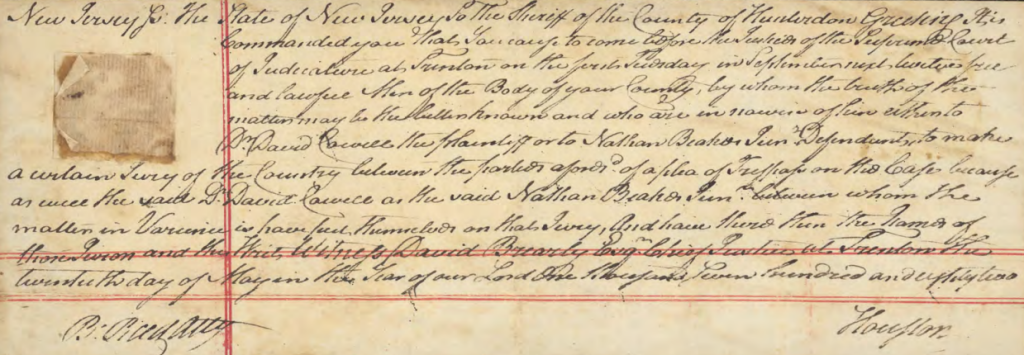 New Jersey Ss. The State of New Jersey To The Sheriff of the County of Hunterdon Greeting It is
Commanded you that You cause to come before the Justices of the Supreme Court
of Judicature at Trenton on the first Tuesday in September next twelve free
and lawful Men of the Body of your County, by whom the truth of the
matter may be the better known and who are in nowise of kin either to
Dr. David Cowell the Plaintiff or to Nathan Beakes Junr. Defendant, to make
a certain Jury of the Country between the parties aforsd. of a plea of Trespass on the Case because
as well the said Dr. David Cowell as the said Nathan Beakes Junr. between whom the
matter in Variance is have put themselves on that Jury, And have there then the Names of
those Jurors and this Writ, Witness David Brearly Esqr. Chief Justice at Trenton the
twentieth day of May in the Year of our Lord One thousand seven hundred and eighty two
Houston